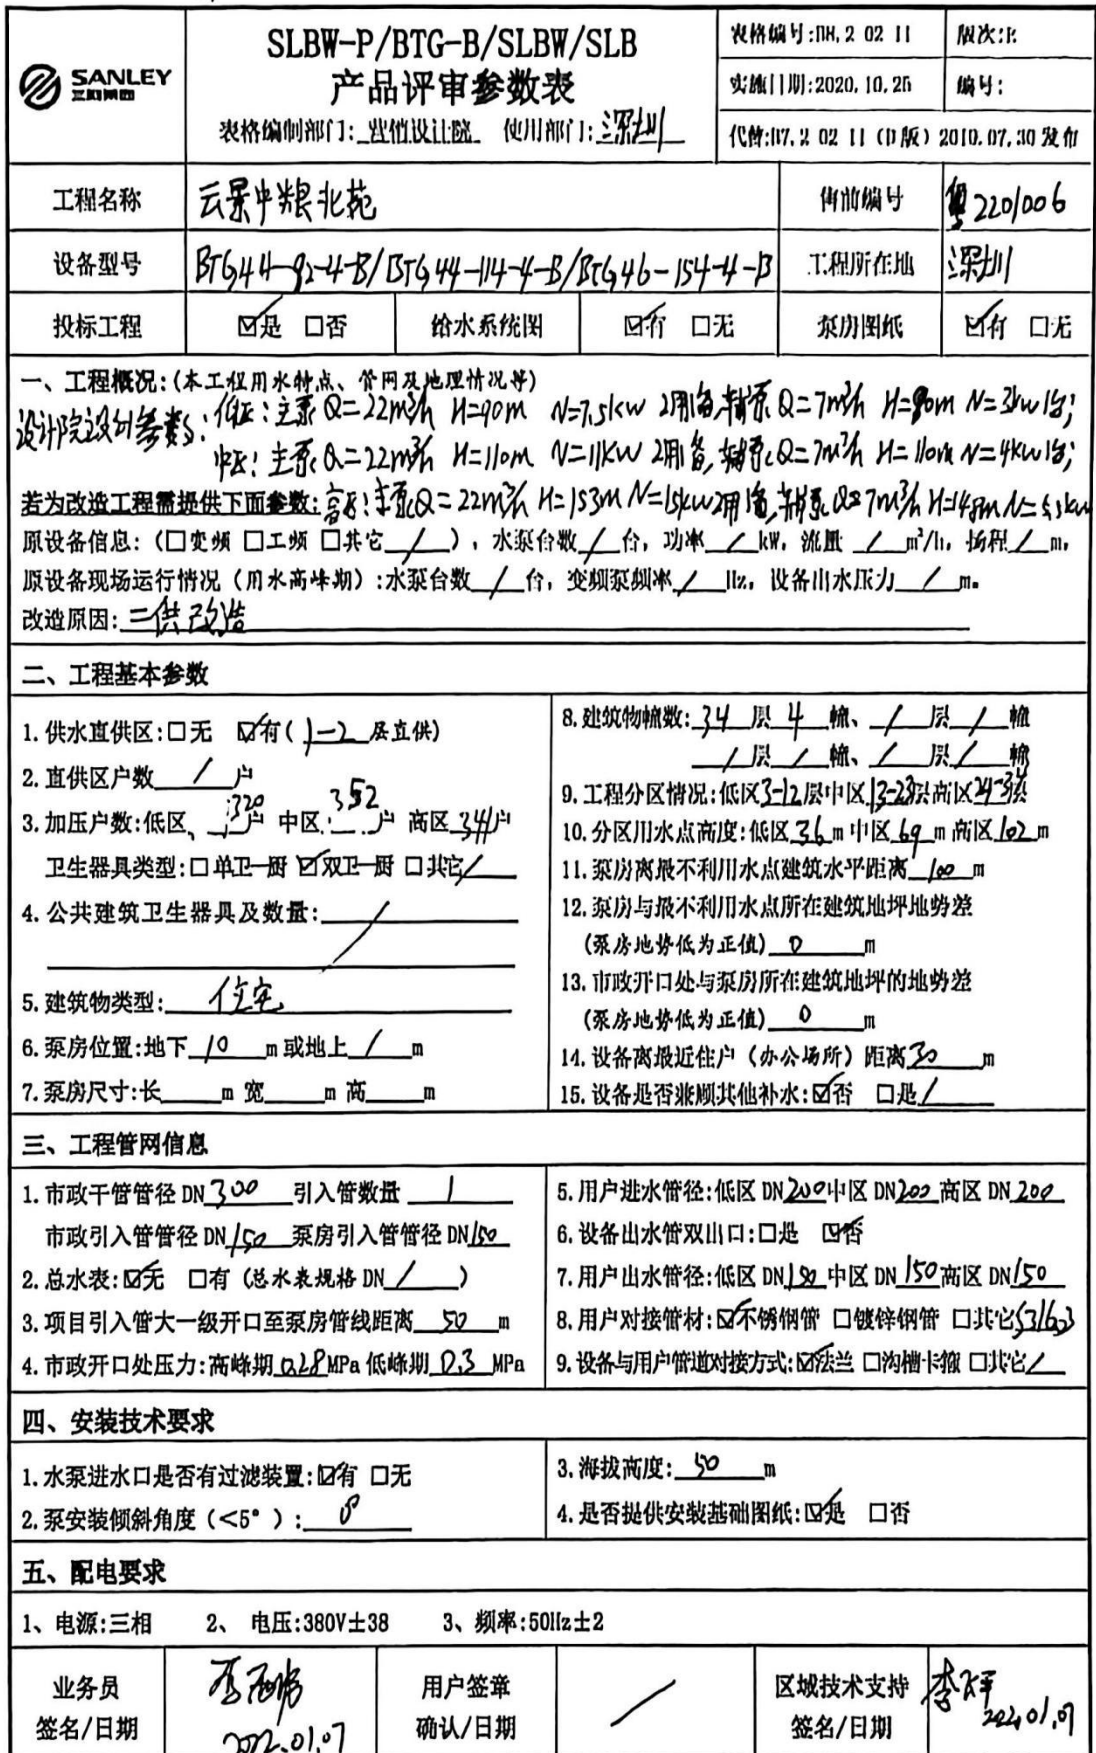 SANLEY
三利集团
SLBW-P/BTG-B/SLBW/SLB
产品评审参数表
表格编制部门:营销设计院 使用部门:深圳
表格编号:BH.2 02 11 版次:E
实施日期:2020.10.25 编号:
代替:B7.2 02 11 (D版) 2019.07.30 发布
工程名称 云景中粮北苑 售前编号 粤2201006
设备型号 BTG44-92-4-B/BTG44-114-4-B/BTG46-154-4-B 工程所在地 深圳
投标工程 ☑是 □否 给水系统图 ☑有 □无 泵房图纸 ☑有 □无
一、工程概况:(本工程用水特点、管网及地理情况等)
设计院设计参数:低区:主泵Q=22m³/h H=90m N=7.5kw 2用1备,辅泵Q=7m³/h H=90m N=3kw 1台;
中区:主泵Q=22m³/h H=110m N=11kw 2用1备,辅泵Q=7m³/h H=110m N=4kw 1台;
若为改造工程需提供下面参数:高区:主泵Q=22m³/h H=153m N=15kw 2用1备,辅泵Q=7m³/h H=148m N=5.5kw
原设备信息:(□变频 □工频 □其它 / ),水泵台数 / 台,功率 / kW,流量 / m³/h,扬程 / m。
原设备现场运行情况(用水高峰期):水泵台数 / 台,变频泵频率 / Hz,设备出水压力 / m。
改造原因:二供改造
二、工程基本参数
1.供水直供区:□无 ☑有(1-2层直供)
2.直供区户数 / 户
3.加压户数:低区320户 中区352户 高区341户
卫生器具类型:□单卫一厨 ☑双卫一厨 □其它/
4.公共建筑卫生器具及数量: /
5.建筑物类型: 住宅
6.泵房位置:地下 10 m或地上 / m
7.泵房尺寸:长 m 宽 m 高 m
8.建筑物幢数:34 层 4 幢、 / 层 / 幢
/ 层 / 幢、 / 层 / 幢
9.工程分区情况:低区3-12层中区13-23层高区24-34层
10.分区用水点高度:低区36m中区69m高区102m
11.泵房离最不利用水点建筑水平距离 100 m
12.泵房与最不利用水点所在建筑地坪地势差
(泵房地势低为正值) 0 m
13.市政开口处与泵房所在建筑地坪的地势差
(泵房地势低为正值) 0 m
14.设备离最近住户(办公场所)距离30 m
15.设备是否兼顾其他补水:☑否 □是/
三、工程管网信息
1.市政干管管径DN300 引入管数量 1
市政引入管管径DN150 泵房引入管管径DN150
2.总水表:☑无 □有(总水表规格DN / )
3.项目引入管大一级开口至泵房管线距离 50 m
4.市政开口处压力:高峰期0.28MPa低峰期0.3MPa
5.用户进水管径:低区DN200中区DN200高区DN200
6.设备出水管双出口:□是 ☑否
7.用户出水管径:低区DN150中区DN150高区DN150
8.用户对接管材:☑不锈钢管 □镀锌钢管 □其它S31603
9.设备与用户管道对接方式:☑法兰 □沟槽卡箍 □其它/
四、安装技术要求
1.水泵进水口是否有过滤装置:☑有 □无
2.泵安装倾斜角度(<5°):
3.海拔高度: 50 m
4.是否提供安装基础图纸:☑是 □否
五、配电要求
1、电源:三相 2、电压:380V±38 3、频率:50Hz±2
业务员
签名/日期
2022.01.07
用户签章
确认/日期
/
区域技术支持
签名/日期
2022.01.07